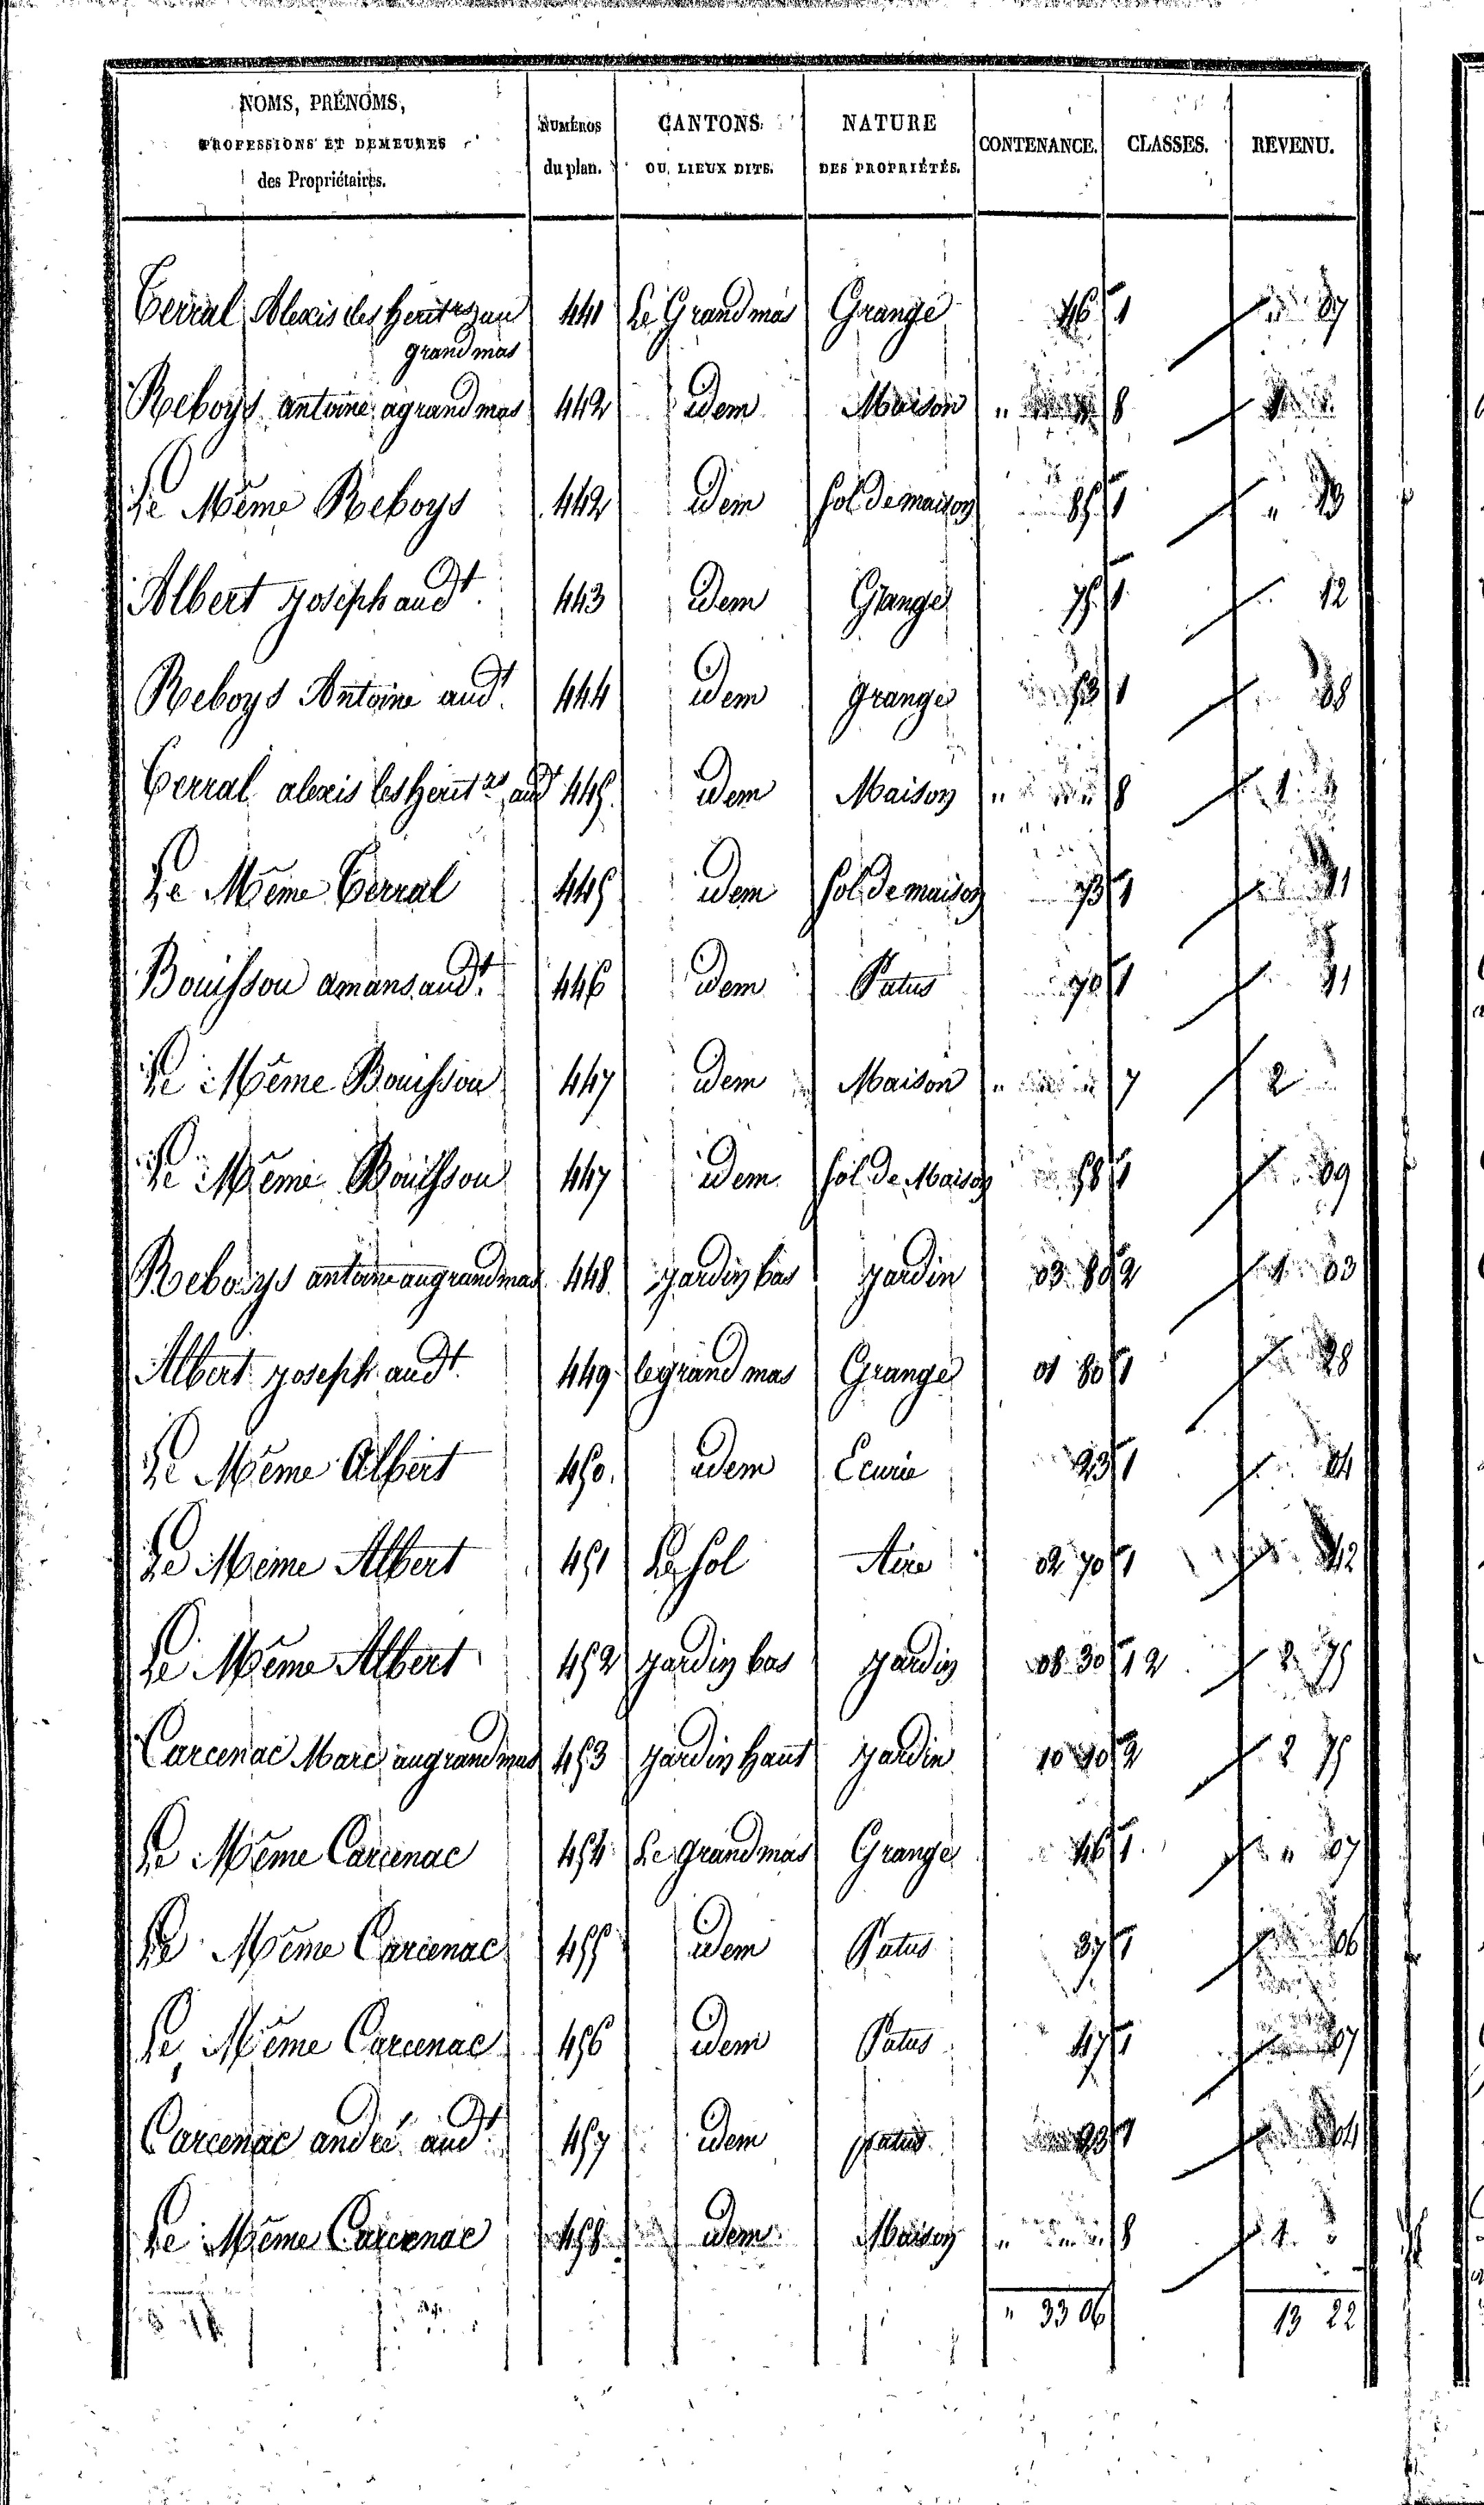 NOMS, PRÉNOMS, PROFESSIONS ET DEMEURES des Propriétaires. NUMÉROS du plan. CANTONS OU LIEUX DITS. NATURE DES PROPRIÉTÉS. CONTENANCE. CLASSES. REVENU.
Terral Alexis les herit au 441 Le Grand mas Grange 46 1 07
grand mas
Reboys antoine a grand mas 442 idem Maison " 8
Le Même Reboys 442 idem Sol de maison 85 1 " 13
Albert joseph aud.t 443 idem Grange 75 1 12
Reboys Antoine aud.t 444 idem grange 53 1 08
Terral alexis les herit aud.t 445 idem Maison " 8 1
Le Même Terral 445 idem Sol de maison 73 1 11
Bouisson amans aud.t 446 idem Patus 70 1 11
Le Même Bouisson 447 idem Maison " 7 2
Le Même Bouisson 447 idem Sol de Maison 58 1 09
Reboys antoine au grand mas 448 jardin bas jardin 03 80 2 1 03
Albert joseph aud.t 449 le grand mas Grange 01 80 1 28
Le Même Albert 450 idem Ecurie 23 1 04
Le Même Albert 451 Le Sol Aire 02 70 1 42
Le Même Albert 452 jardin bas jardin 08 30 1 2 2 75
Carcenac Marc au grand mas 453 jardin haut jardin 10 10 2 2 75
Le Même Carcenac 454 Le grand mas Grange 46 1 " 07
Le Même Carcenac 455 idem Patus 37 1 06
Le Même Carcenac 456 idem Patus 47 1 07
Carcenac andré aud.t 457 idem patus 23 1 04
Le Même Carcenac 458 idem Maison " 8 1
" 33 06 13 22